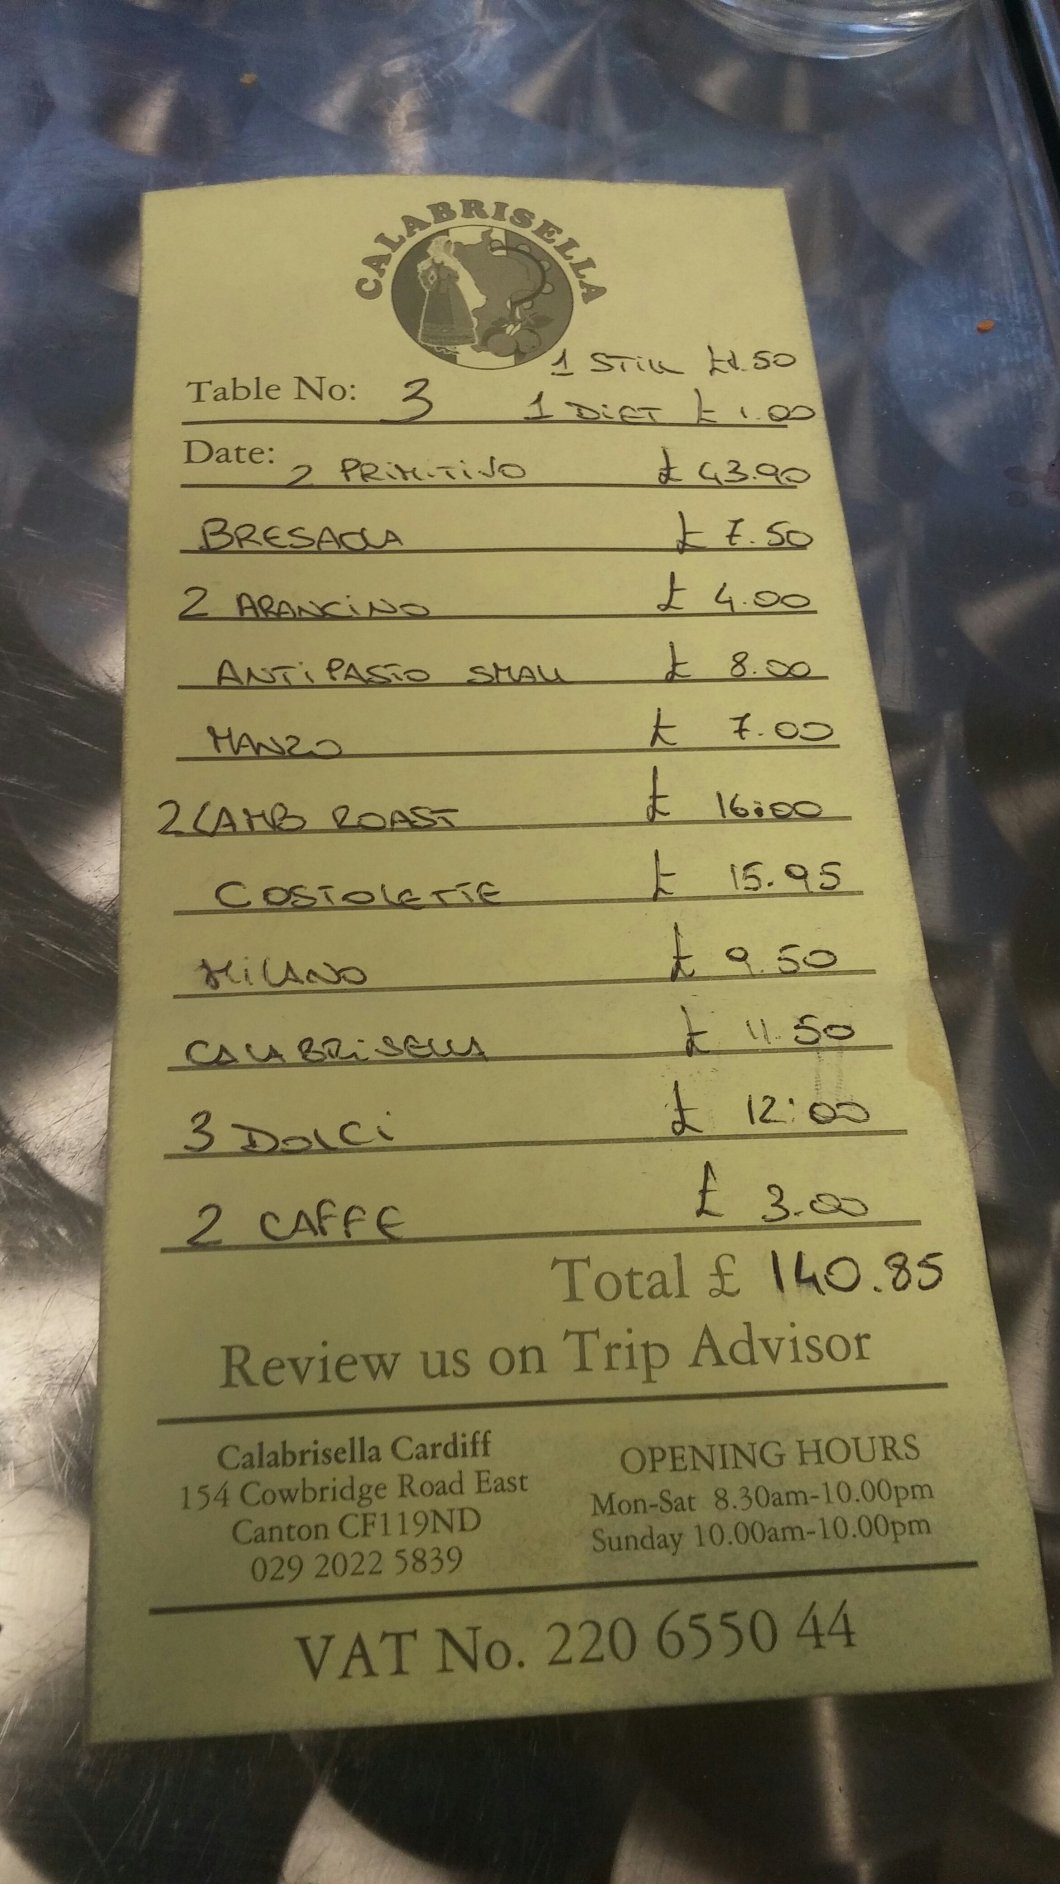 CALABRISELLA
1 STILL £1.50
Table No: 3 1 DIET £ 1.00
Date: 2 PRIMITIVO £ 43.90
BRESAOLA £ 7.50
2 ARANCINO £ 4.00
ANTIPASTO SMALL £ 8.00
MANZO £ 7.00
2 LAMB ROAST £ 16:00
COSTOLETTE £ 15.95
MILANO £ 9.50
CALABRISELLA £ 11.50
3 DOLCI £ 12:00
2 CAFFE £ 3.00
Total £ 140.85
Review us on Trip Advisor
Calabrisella Cardiff
154 Cowbridge Road East
Canton CF119ND
029 2022 5839
OPENING HOURS
Mon-Sat 8.30am-10.00pm
Sunday 10.00am-10.00pm
VAT No. 220 6550 44